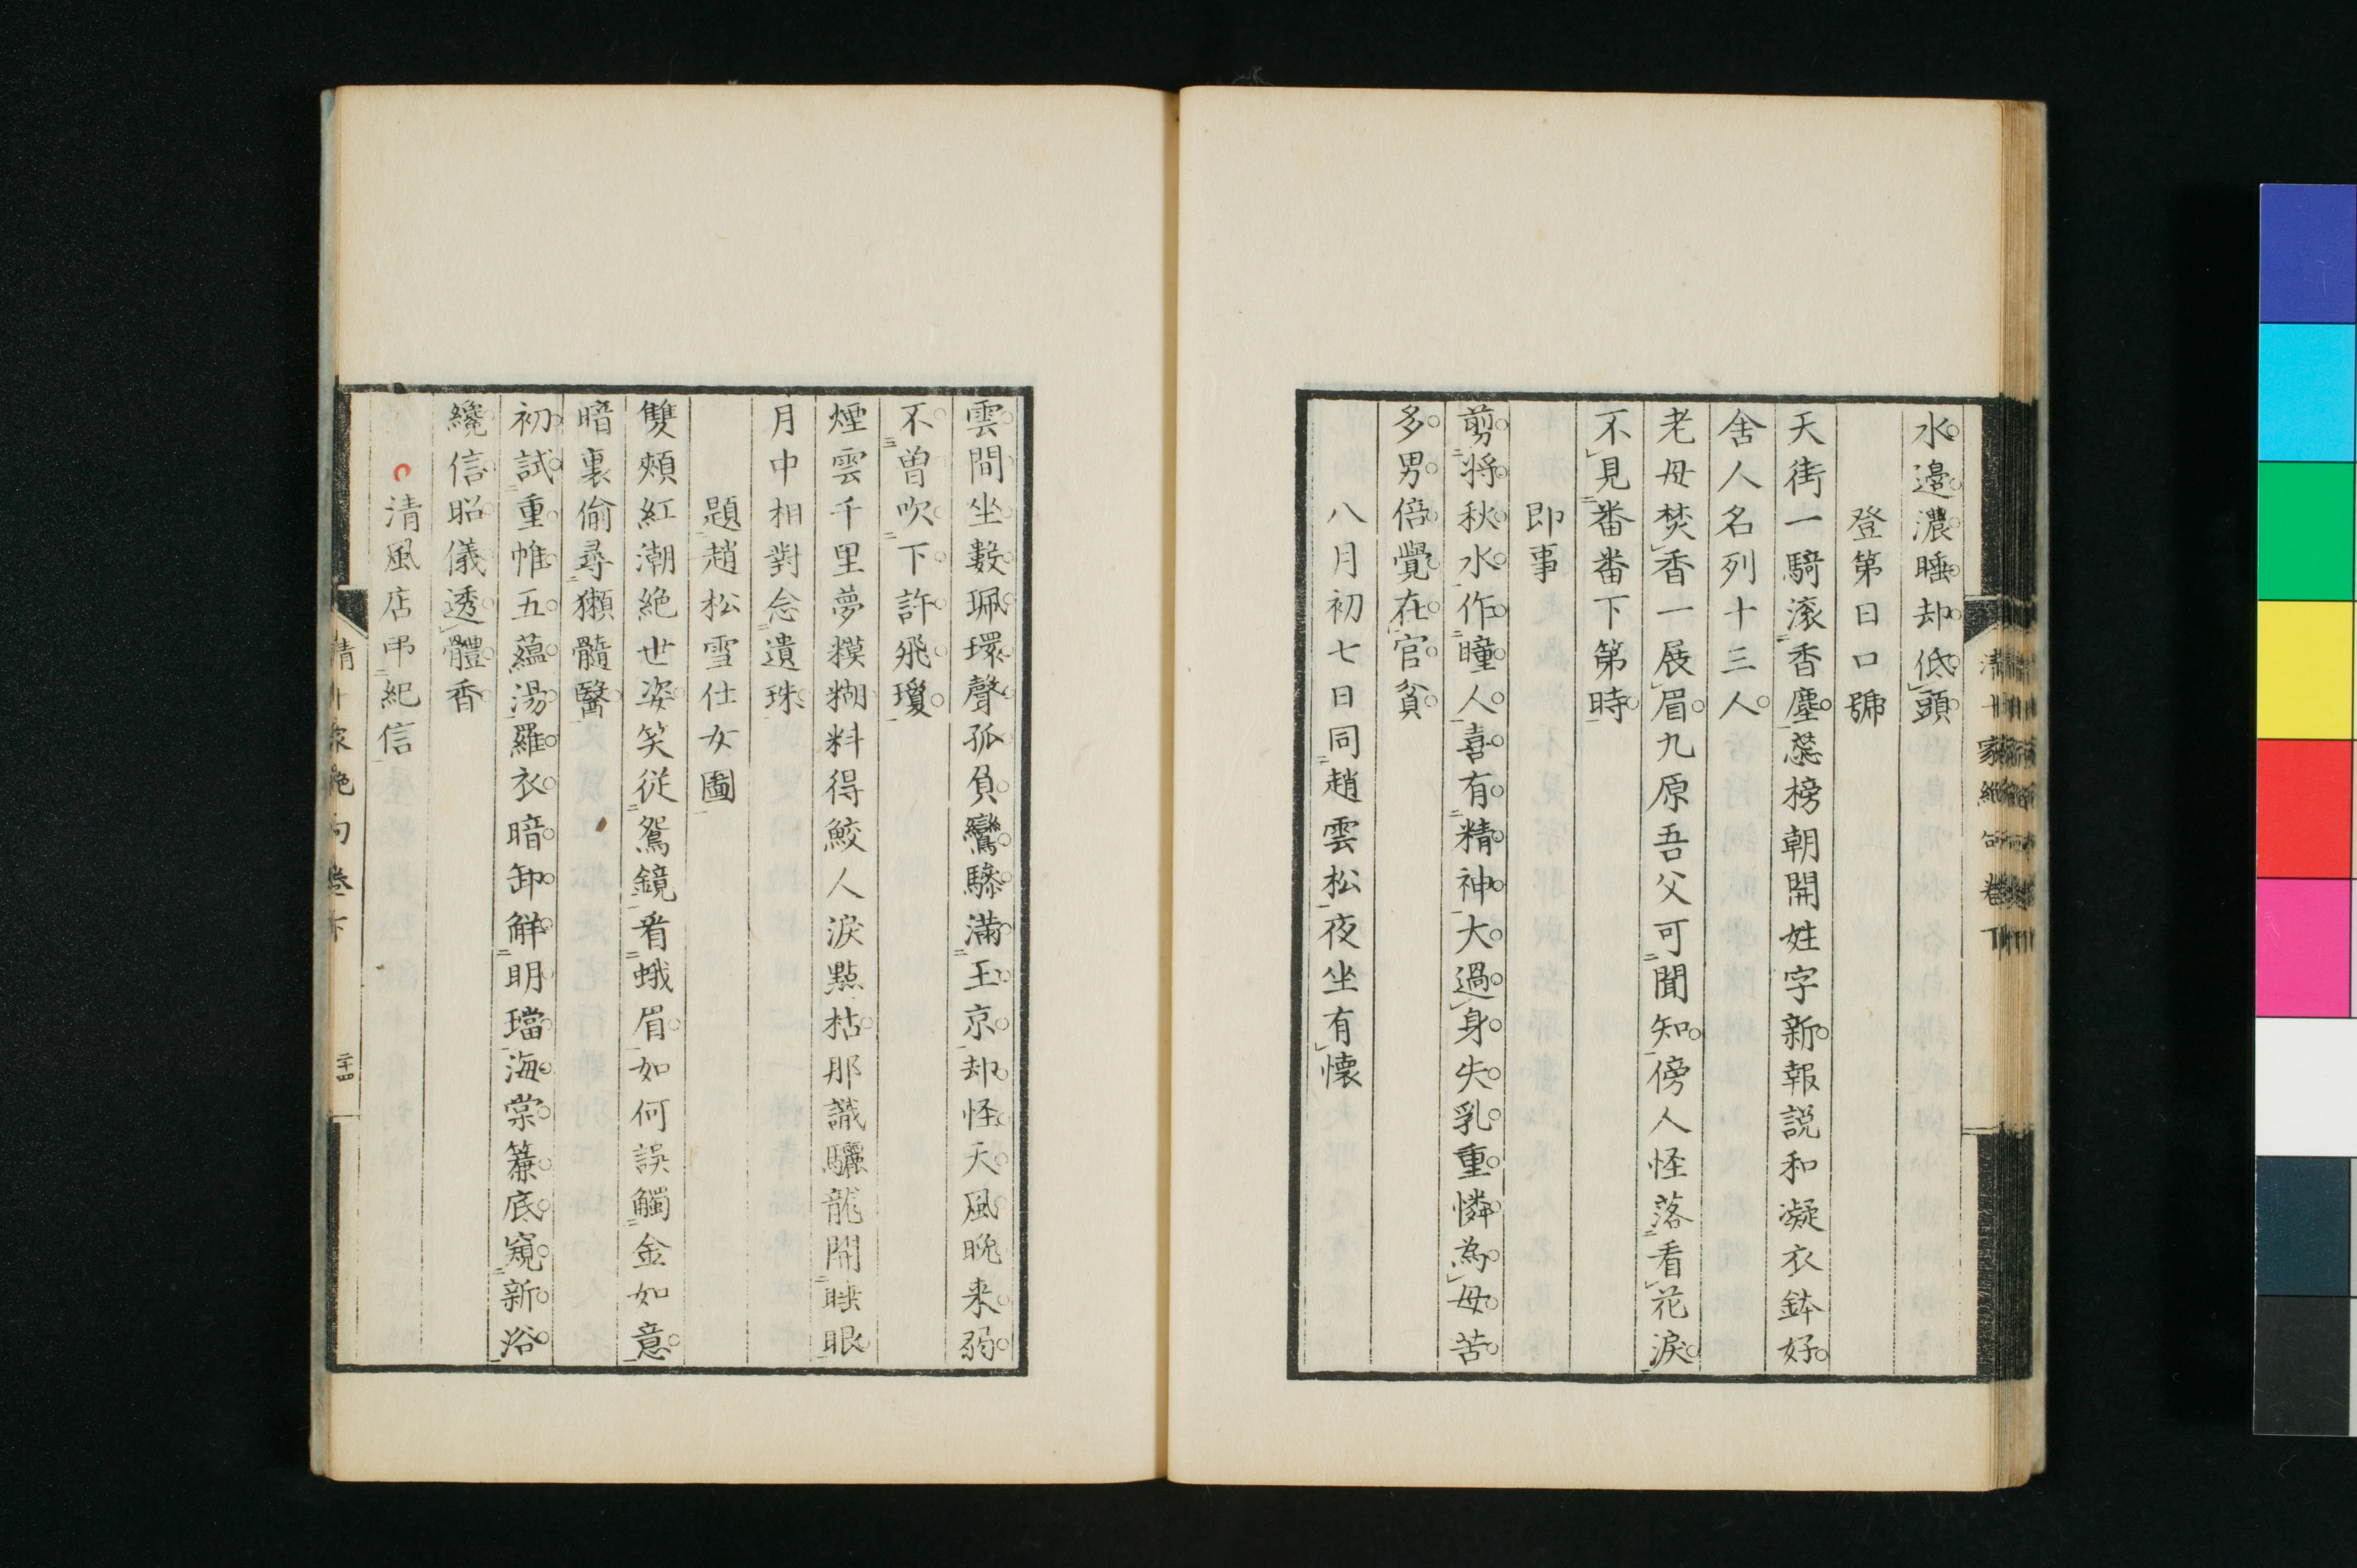 水邊濃睡却低頭
登第日口號
天街一騎滚香塵蕊榜朝開姓字新報説和凝衣鉢好
舍人名列十三人
老母焚香一展眉九原吾父可聞知傍人怪落看花淚
不見番番下第時
即事
剪将秋水作瞳人喜有精神大過身失乳重憐為母苦
多男倍覺在官貧
八月初七日同趙雲松夜坐有懐
清十家絶句卷下
雲間坐數珮環聲孤負鸞驂滿玉京却怪天風晩来弱
不曽吹下許飛瓊
煙雲千里夢糢糊料得鮫人淚點枯那識驪龍開睡眼
月中相對念遺珠
題趙松雪仕女圖
雙頰紅潮絶世姿笑従鴛鏡看蛾眉如何誤觸金如意
暗裏偷尋獺髓醫
初試重帷五蕴湯羅衣暗卸解明璫海棠簾底窺新浴
纔信昭儀透體香
清風店弔紀信
清十家絶句卷下
二十四